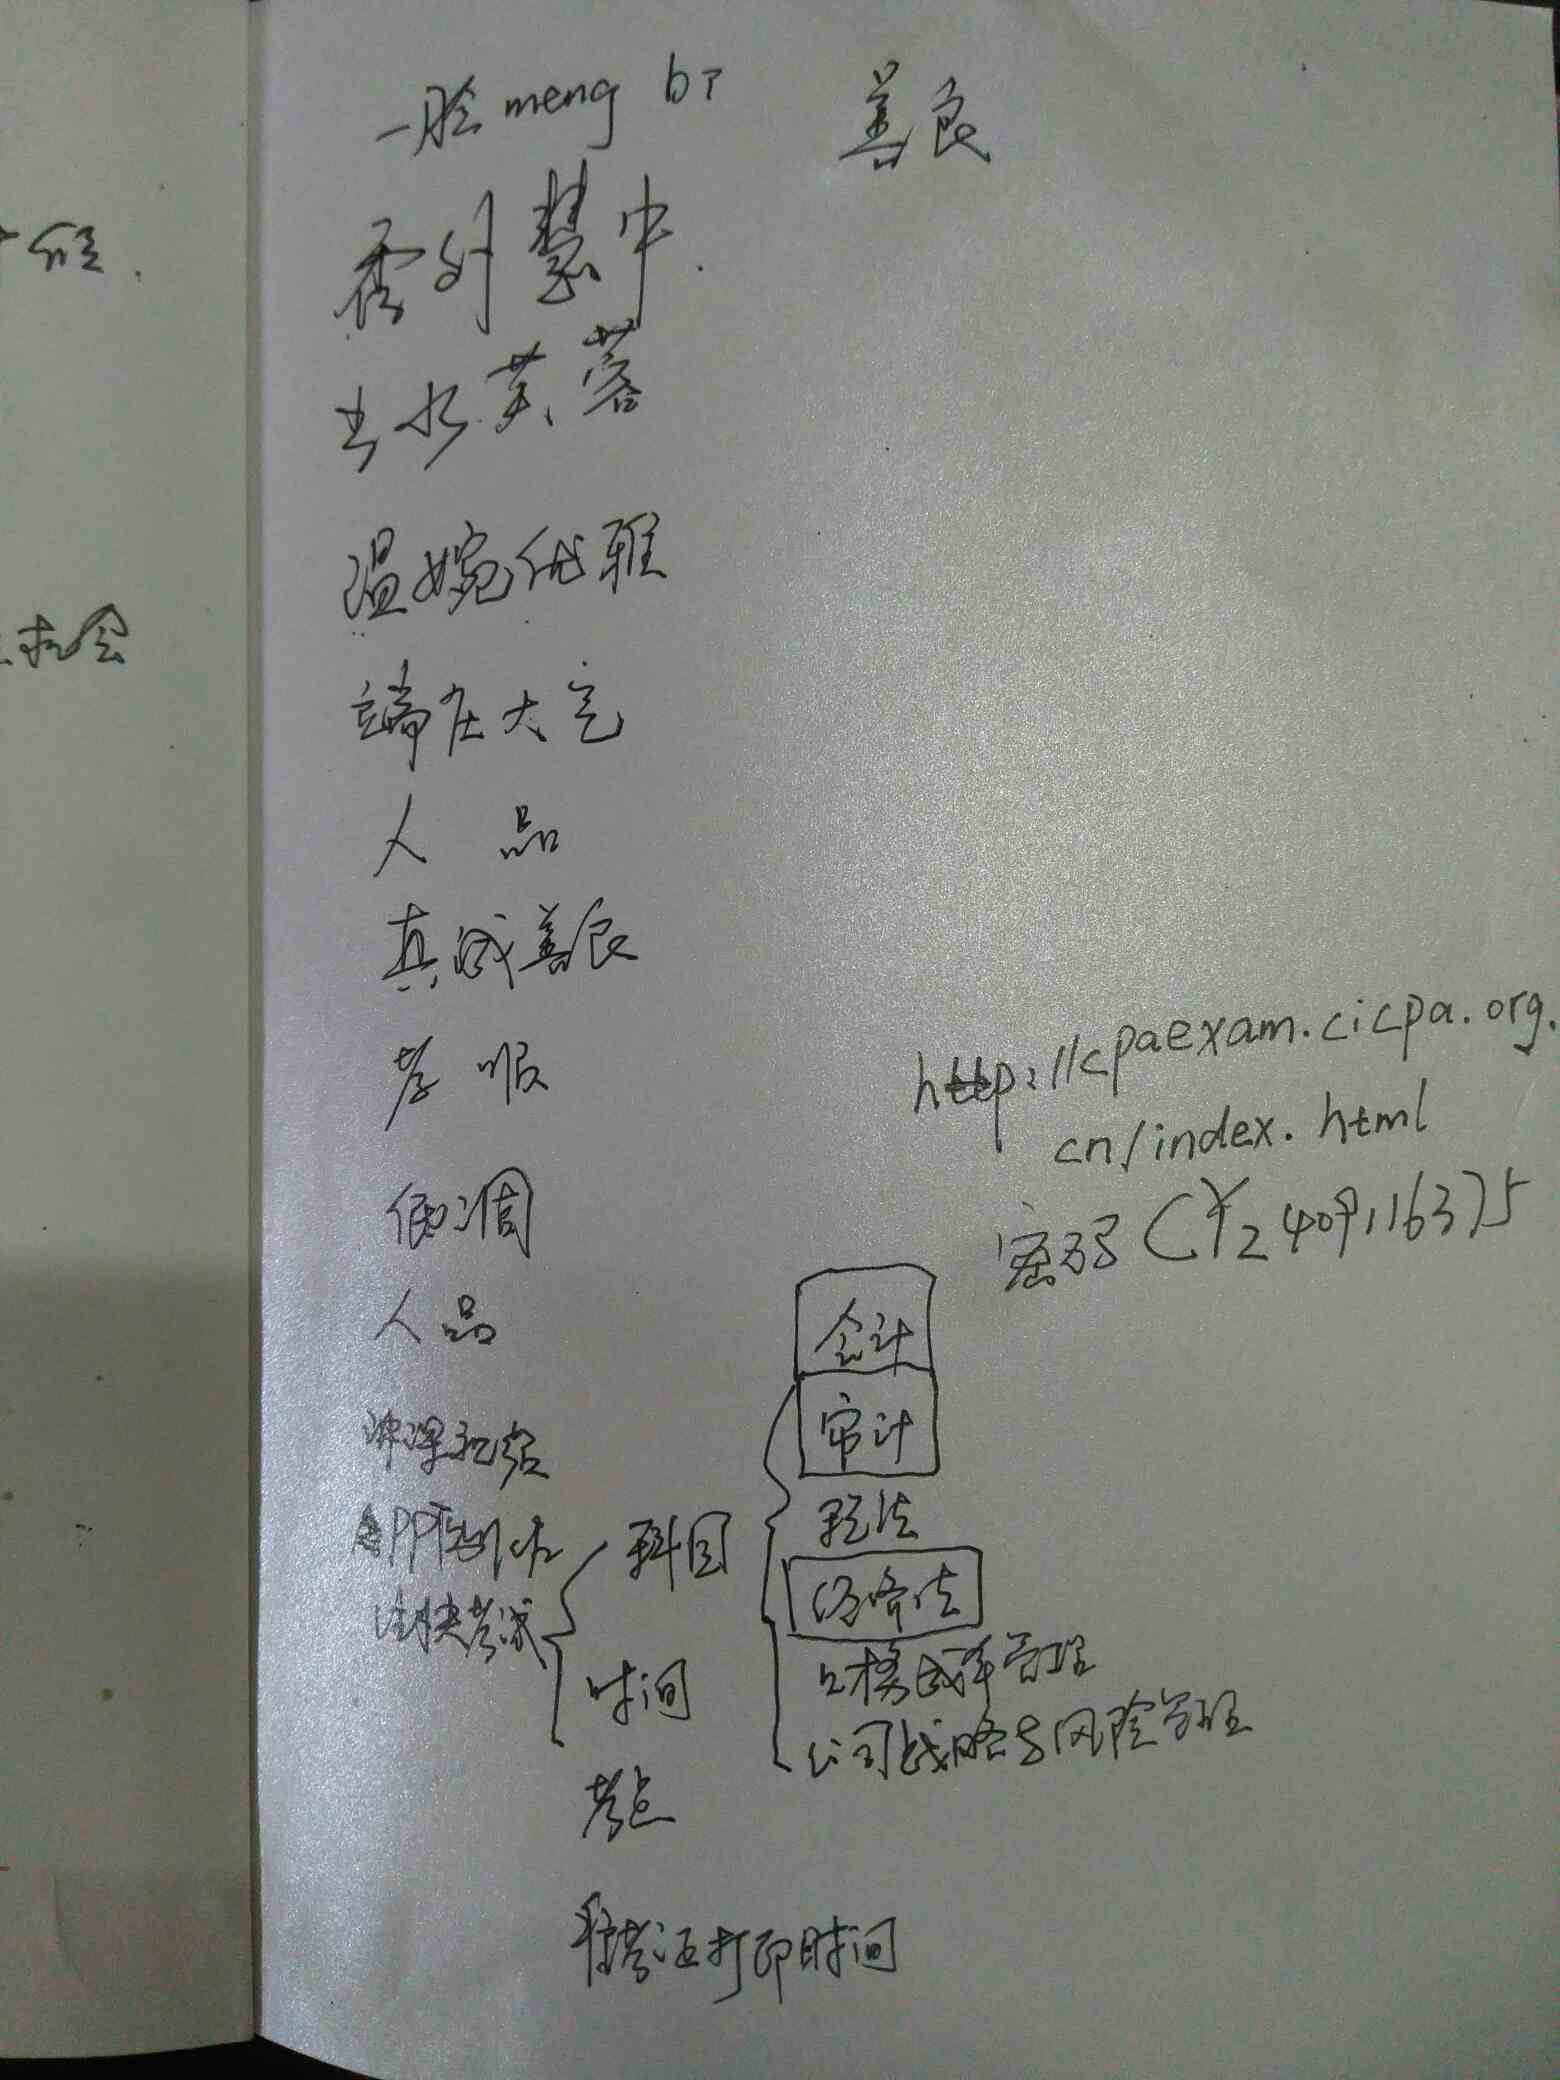 一脸 meng bi 善良
秀外慧中
出水芙蓉
温婉优雅
端庄大气
人品
真诚善良
孝顺
http://cpaexam.cicpa.org.
cn/index.html
低调
密码 CY2409116375
人品
会计
审计
PPT制作
科目
税法
注快考试
经济法
时间
成本管理
公司战略与风险管理
考点
准考证打印时间
机会